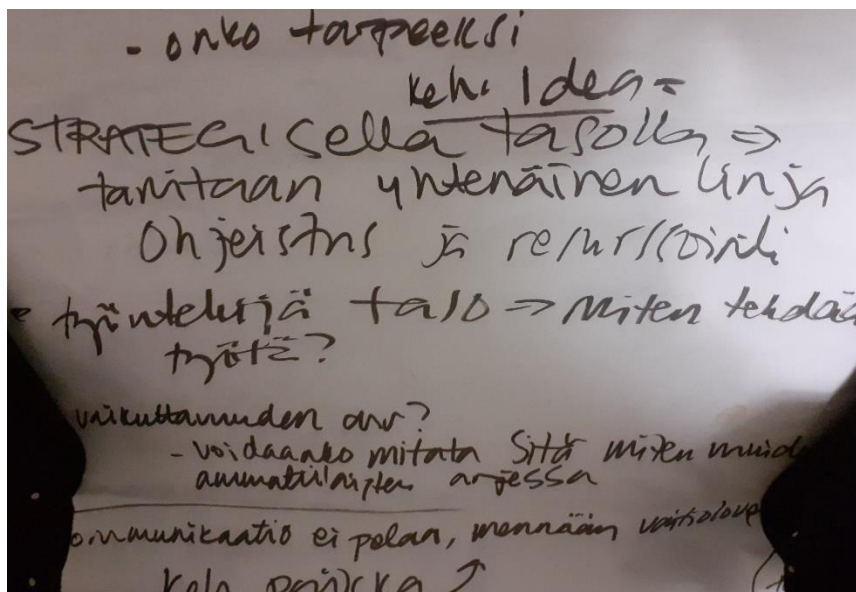 - onko tarpeeksi
keh. Idea =
STRATEGISELLA tasolla ⇒
tarvitaan yhtenäinen linja
Ohjeistus ja resursointi
työntekijä taso ⇒ Miten tehdää
työtä?
vaikuttavuuden arv?
- voidaanko mitata Sitä miten muid
ammattilaisten arjessa
ommunikaatio ei pelaa, mennään
Keh